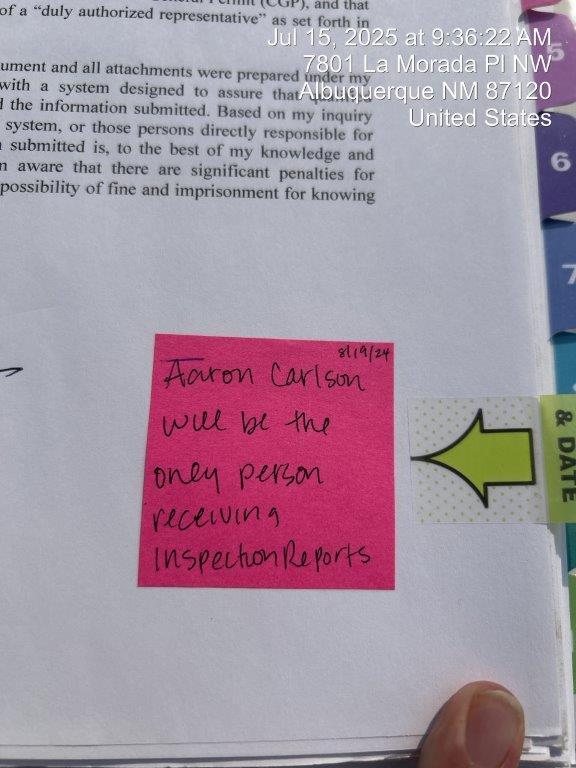 (CGP), and that
of a “duly authorized representative” as set forth in
ument and all attachments were prepared under my
with a system designed to assure that
the information submitted. Based on my inquiry
system, or those persons directly responsible for
submitted is, to the best of my knowledge and
aware that there are significant penalties for
possibility of fine and imprisonment for knowing
Jul 15, 2025 at 9:36:22 AM
7801 La Morada Pl NW
Albuquerque NM 87120
United States
5
6
7
8/19/24
Aaron Carlson
will be the
only person
receiving
Inspection Reports
& DATE